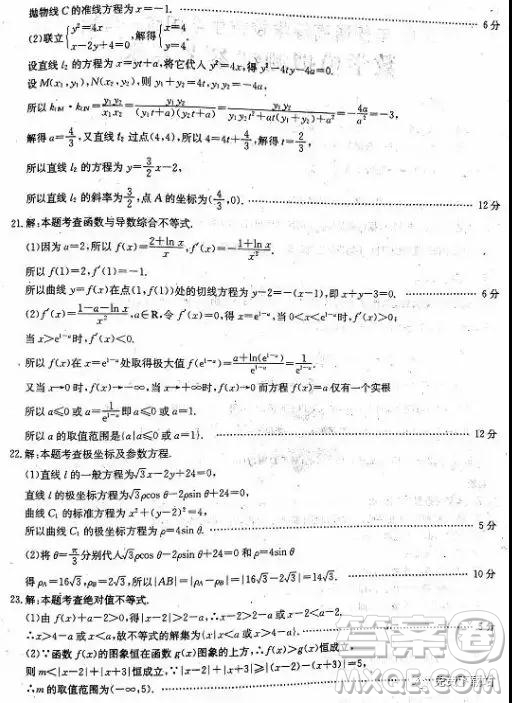 抛物线 C 的准线方程为 x=-1. 6分
(2)联立{y²=4x x-2y+4=0,解得{x=4 y=4.
设直线 l₂ 的方程为 x=ty+a,将它代入 y²=4x,得 y²-4ty-4a=0.
设 M(x₁,y₁),N(x₂,y₂),则 y₁+y₂=4t,y₁y₂=-4a,
所以 k_OM·k_ON=y₁y₂/x₁x₂=y₁y₂/(y₁t+a)(y₂t+a)=y₁y₂/y₁y₂t²+at(y₁+y₂)+a²=-4a/a²=-3,
解得 a=4/3,又直线 l₂ 过点(4,4),所以 4=4t+4/3,解得 t=2/3,
所以直线 l₂ 的方程为 y=3/2x-2,
所以直线 l₂ 的斜率为3/2,点 A 的坐标为(4/3,0). 12分
21.解:本题考查函数与导数综合不等式.
(1)因为 a=2,所以 f(x)=2+ln x/x,f′(x)=-1+ln x/x².
所以 f(1)=2,f′(1)=-1.
所以曲线 y=f(x)在点(1,f(1))处的切线方程为 y-2=-(x-1),即 x+y-3=0. 6分
(2)f′(x)=1-a-ln x/x²,a∈R,令 f′(x)=0,得 x=e¹⁻ᵃ,当 0<x<e¹⁻ᵃ时,f′(x)>0;
当 x>e¹⁻ᵃ时,f′(x)<0.
所以 f(x)在 x=e¹⁻ᵃ处取得极大值 f(e¹⁻ᵃ)=a+ln(e¹⁻ᵃ)/e¹⁻ᵃ=1/e¹⁻ᵃ.
又当 x→0 时,f(x)→-∞,当 x→+∞时,f(x)→0 而方程 f(x)=a 仅有一个实根
所以 a≤0 或 a=1/e¹⁻ᵃ即 a≤0 或 a=1.
所以 a 的取值范围是{a|a≤0 或 a=1}. 12分
22.解:本题考查极坐标及参数方程.
(1)直线 l 的一般方程为√3x-2y+24=0,
直线 l 的极坐标方程为√3ρcos θ-2ρsin θ+24=0,
曲线 C₁ 的标准方程为 x²+(y-2)²=4,
所以曲线 C₁ 的极坐标方程为 ρ=4sin θ. 5分
(2)将 θ=π/3分别代入√3ρcos θ-2ρsin θ+24=0 和 ρ=4sin θ.
得 ρA=16√3,ρB=2√3,所以|AB|=|ρA-ρB|=|16√3-2√3|=14√3. 10分
23.解:本题考查绝对值不等式.
(1)由 f(x)+a-2>0,得|x-2|>2-a,∴x-2>2-a 或 x-2<a-2,
∴x>4-a 或 x<a,故不等式的解集为{x|x<a或x>4-a}. 5分
(2)∵函数 f(x)的图象恒在函数 g(x)图象的上方,∴f(x)>g(x)恒成立,
则 m<|x-2|+|x+3|恒成立,∵|x-2|+|x+3|≥|(x-2)-(x+3)|=5,
∴m 的取值范围为(-∞,5).
答案圈